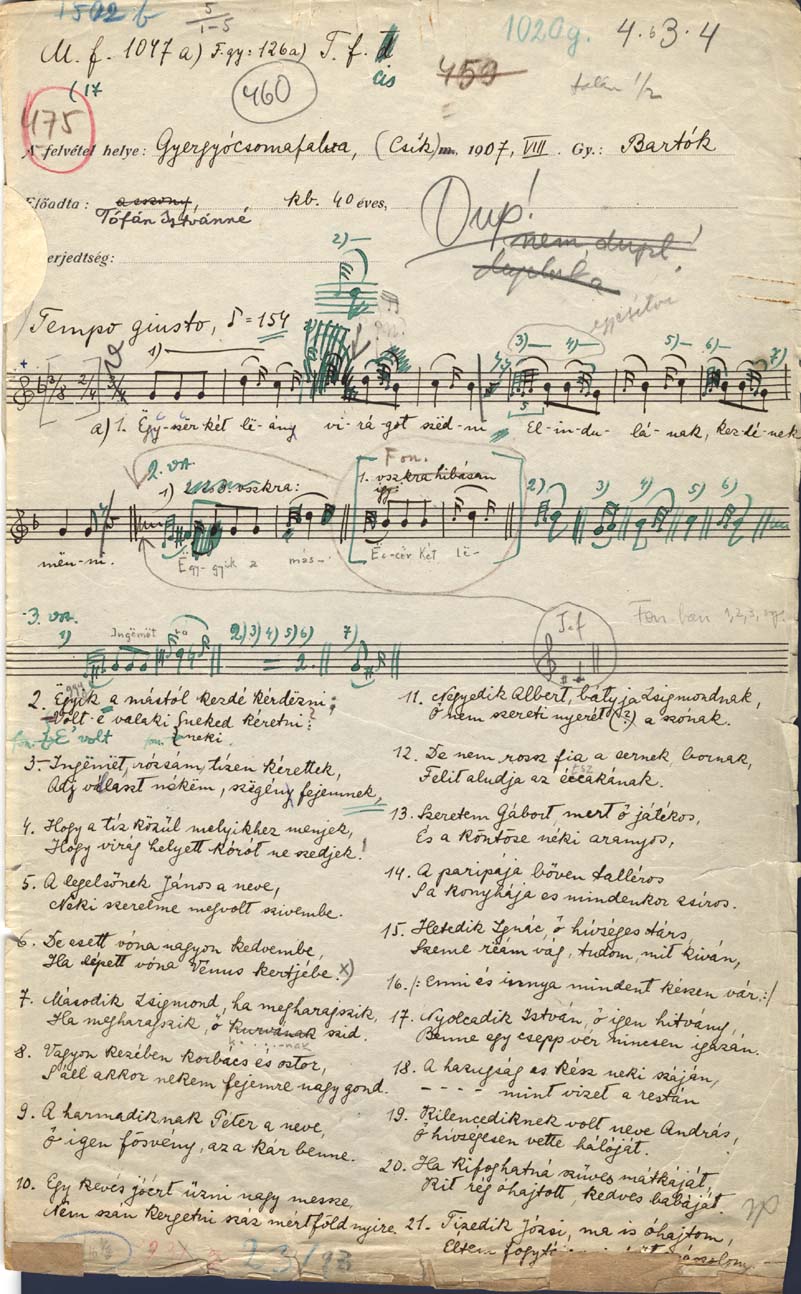 1502 b
5
1-5
1020g.
4.b3.4
M. f. 1047 a) F.gy: 126a) T. f.
cis
(17
460
459
talán 1/2
475
A felvétel helye: Gyergyócsomafalva, (Csík) m. 1907, VIII. Gy.: Bartók
Előadta: a asszony, kb. 40 éves,
Tófán Istvánné
Dup!
nem dupl!
erjedtség:
2)
Tempo giusto, = 154
1) 3) 4) 5) 6) 7)
a) 1. Ëgy-szër két lë-ány vi-rá-got szëd-ni El-in-du-lá-nak, kez-dé-nek
2. va.
Fon.
1) 2. és 3. vszkra:
1. vszkra hibásan így:
2) 3) 4) 5) 6)
mën-ni.
Ëgy-gyik a más-
Ëc-cër két lë-
3. va.
1) Ingëmöt ró 2) 3) 4) 5) 6) = 2. 7)
T.f
Fon.-ban 1, 2, 3,
2. Ëgyik a mástól kezdé kérdëzni:
Volt-é valaki tneked kéretni?
fon. É volt fon. neki
3. Ingëmët, rózsám, tízen kérettek,
Adj választ nékëm, szëgény fejemnek,
4. Hogy a tíz közül melyikhez menjek,
Hogy virág helyett kórót ne szedjek!
5. A legelsőnek János a neve,
Néki szerelme megvolt szivembe.
6. De esett vóna nagyon kedvembe,
Ha lépett vóna Vénus kertjébe. x)
7. Második Zsigmond, ha megharagszik,
Ha megharagszik, ő kurvának szid.
8. Vagyon kezében korbács és ostor,
S áll akkor nekem fejemre nagy gond.
9. A harmadiknak Péter a neve,
Ő igen fösvény, az a kár benne.
10. Egy kevés jóért űzni nagy messze,
Nem szán kergetni száz mértföldnyire.
11. Negyedik Albert, bátyja Zsigmondnak,
Ő nem szereti nyerét (?) a szónak.
12. De nem rossz fia a sernek, bornak,
Felit aludja az éccakának.
13. Szeretem Gábort, mert ő játékos,
És a köntöse néki aranyos,
14. A paripája bőven talléros
S a konyhája es mindenkor zsíros.
15. Hetedik Ignác, ő hívséges társ,
Szeme reám vág, tudom, mit kiván,
16. /: Enni és innya mindent készen vár, :/
17. Nyolcadik István, ő igen hitvány,
Benne egy csepp vér nincsen igazán.
18. A hazugság es kész neki száján,
- - - - mint vizet a restán
19. Kilencediknek volt neve András,
Ő hívségesen vette hálóját.
20. Ha kifoghatná szűves mátkáját,
Kit rég óhajtott, kedves babáját.
21. Tizedik Józsi, ma is óhajtom,
Éltem fogyt